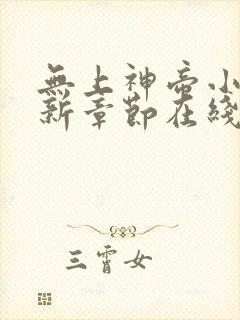 無上神帝小
新章節在綫
三霄女